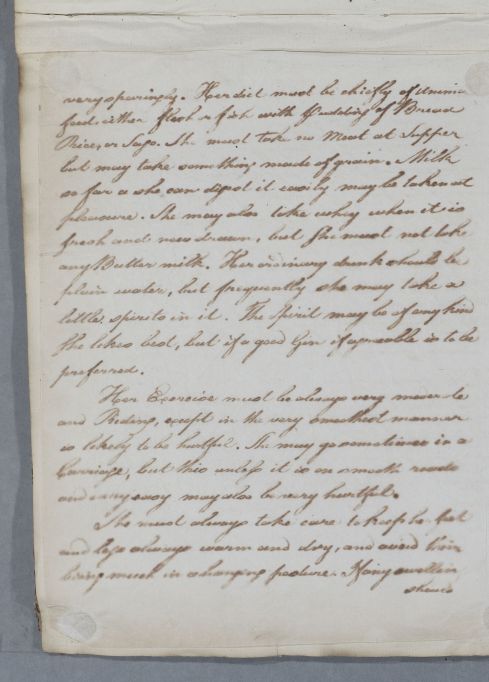 very sparingly. Her diet must be chiefly of
food either flesh or fish with Pudding of Bread
Rice, or Sago. She must take no Meat at Supper
but may take something made of grain. Milk
so far a she can digest it easily may be taken at
pleasure. She may also take whey when it is
fresh and new drawn, but She must not take
any Butter milk. Her ordinary drink should be
plain water, but frequently she may take a
little spirits in it. The Spirit may be of any kind
She likes best, but if a good Gin if agreeable is to be
preferred.
Her Exercise must be always very moderate
and Riding, except in the very smoothest manner
is likely to be hurtful. She may go sometimes in a
Carriage, but this unless it is on smooth roads
and easy may also be very hurtful.
She must always take care to keep her feet
and legs always warm and dry, and avoid
being much in a hanging posture. If any swellin
should